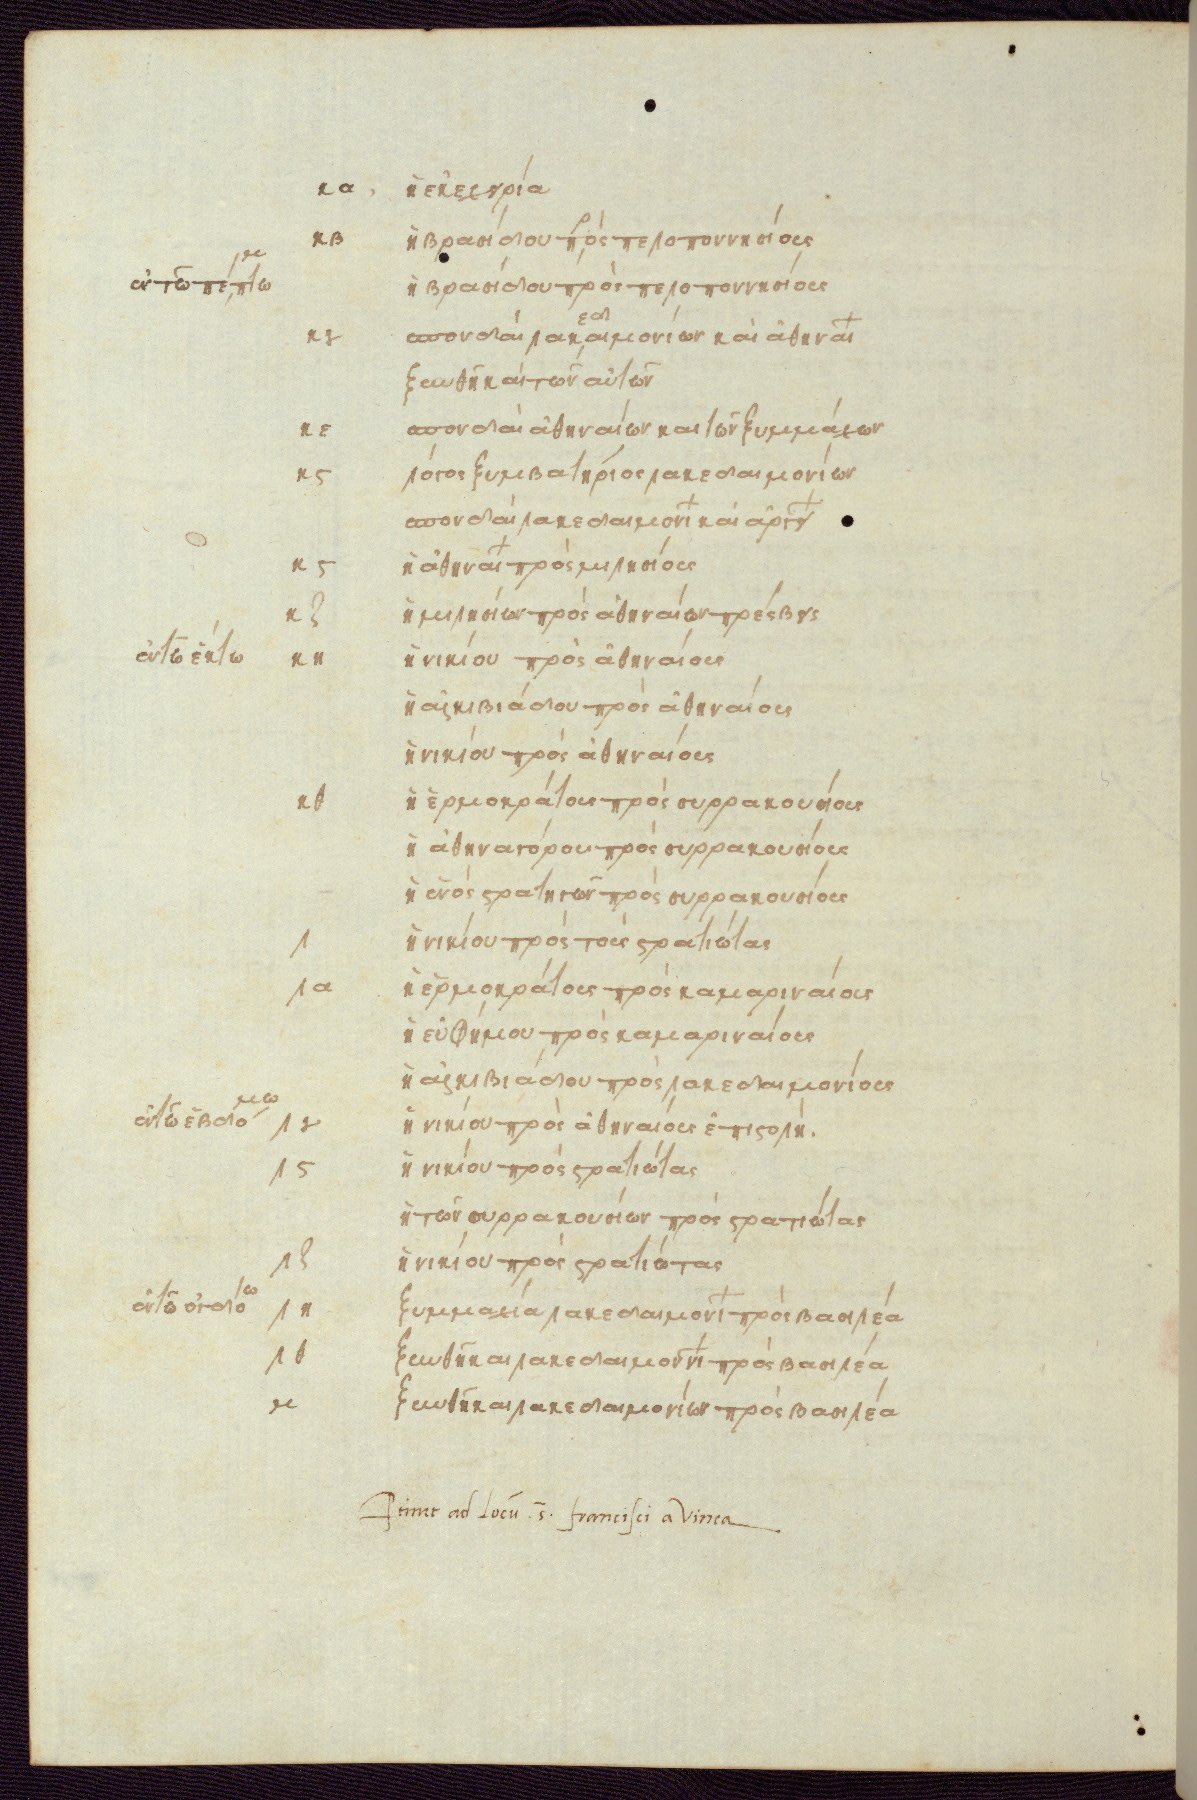 κα ἡ ἐκεχειρία
κβ ἡ βρασίδου πρὸς πελοποννησίους
ἐν τῶ πέμπτω ἡ βρασίδου πρὸς πελοποννησίους
κγ σπονδαὶ λακεδαιμονίων καὶ ἀθηναί
ξυνθῆκαι τῶν αὐτῶν
κε σπονδαὶ ἀθηναίων και τῶν ξυμμάχων
κς λόγος ξυμβατήριος λακεδαιμονίων
σπονδαὶ λακεδαιμονί καὶ ἀργεί
κς ἡ ἀθηναί πρὸς μιλησίους
κζ ἡ μιλησίων πρὸς ἀθηναίων πρέσβεις
ἐν τῶ ἕκτω κη ἡ νικίου πρὸς ἀθηναίους
ἡ ἀλκιβιάδου πρὸς ἀθηναίους
ἡ νικίου πρὸς ἀθηναίους
κθ ἡ ἑρμοκράτους πρὸς συρρακουσίους
ἡ ἀθηναγόρου πρὸς συρρακουσίους
ἡ ἑνὸς στρατηγῶν πρὸς συρρακουσίους
λ ἡ νικίου πρὸς τοὺς στρατιώτας
λα ἡ ἑρμοκράτους πρὸς καμαριναίους
ἡ εὐφήμου πρὸς καμαριναίους
ἡ ἀλκιβιάδου πρὸς λακεδαιμονίους
ἐν τῶ ἑβδόμω λγ ἡ νικίου πρὸς ἀθηναίους ἐπιστολή.
λς ἡ νικίου πρὸς στρατιώτας
ἡ τῶν συρρακουσίων πρὸς στρατιώτας
λζ ἡ νικίου πρὸς στρατιώτας
ἐν τῶ ὀγδόω λη ξυμμαχία λακεδαιμονί πρὸς βασιλέα
λθ ξυνθῆκαι λακεδαιμονί πρὸς βασιλέα
μ ξυνθῆκαι λακεδαιμονίων πρὸς βασιλέα
Ptinet ad Locū .S. francisci a Vinea